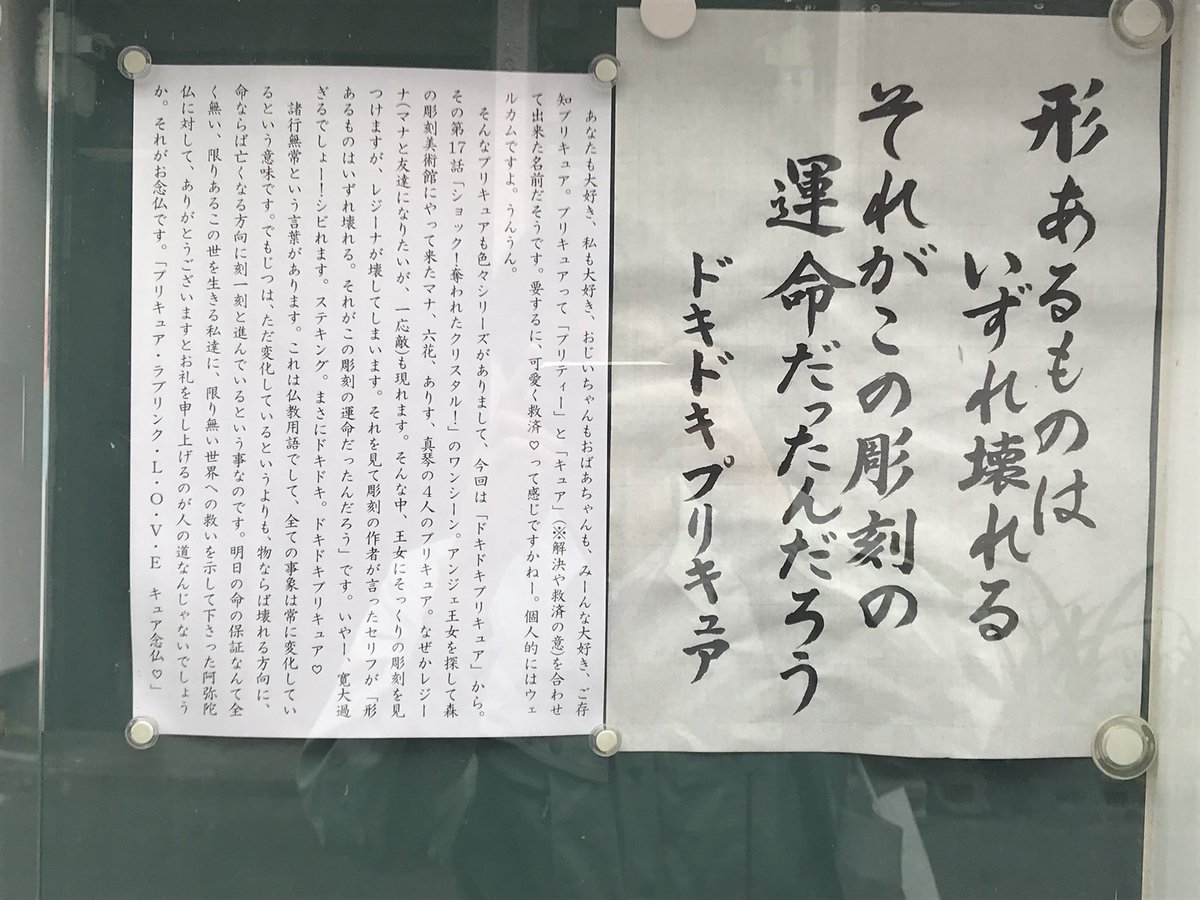 形あるものは
いずれ壊れる
それがこの彫刻の
運命だったんだろう
ドキドキプリキュア
あなたも大好き、私も大好き、おじいちゃんもおばあちゃんも、みーんな大好き、ご存
知プリキュア。プリキュアって「プリティー」と「キュア」(※解決や救済の意)を合わせ
て出来た名前だそうです。要するに、可愛く救済♡って感じですかねー。個人的にはウェ
ルカムですよ。うんうん。
そんなプリキュアも色々シリーズがありまして、今回は「ドキドキプリキュア」から。
その第17話「ショック!奪われたクリスタル!」のワンシーン。アンジェ王女を探して森
の彫刻美術館にやって来たマナ、六花、ありす、真琴の4人のプリキュア。なぜかレジー
ナ(マナと友達になりたいが、一応敵)も現れます。そんな中、王女にそっくりの彫刻を見
つけますが、レジーナが壊してしまいます。それを見て彫刻の作者が言ったセリフが「形
あるものはいずれ壊れる。それがこの彫刻の運命だったんだろう」です。いやー、寛大過
ぎるでしょー!シビれます。ステキング。まさにドキドキ。ドキドキプリキュア♡
諸行無常という言葉があります。これは仏教用語でして、全ての事象は常に変化してい
るという意味です。でもじつは、ただ変化しているというよりも、物ならば壊れる方向に、
命ならば亡くなる方向に刻一刻と進んでいるという事なのです。明日の命の保証なんて全
く無い、限りあるこの世を生きる私達に、限り無い世界への救いを示して下さった阿弥陀
仏に対して、ありがとうございますとお礼を申し上げるのが人の道なんじゃないでしょう
か。それがお念仏です。「プリキュア・ラブリンク・L・O・V・E キュア念仏♡」